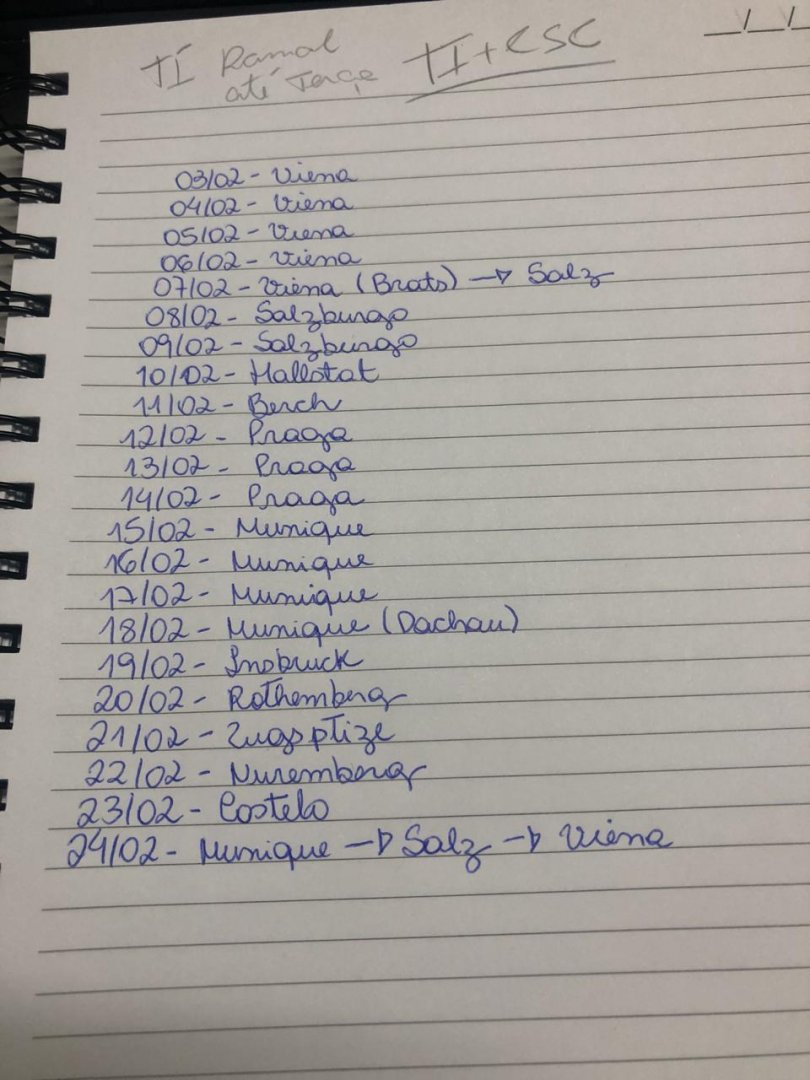 TI Ramal TI + CSC
até Terça
03/02 - Viena
04/02 - Viena
05/02 - Viena
06/02 - Viena
07/02 - Viena (Brats) → Salz
08/02 - Salzburgo
09/02 - Salzburgo
10/02 - Hallstat
11/02 - Berch
12/02 - Praga
13/02 - Praga
14/02 - Praga
15/02 - Munique
16/02 - Munique
17/02 - Munique
18/02 - Munique (Dachau)
19/02 - Insbruck
20/02 - Rothemberg
21/02 - Zugsptize
22/02 - Nuremberg
23/02 - Castelo
24/02 - Munique → Salz → Viena